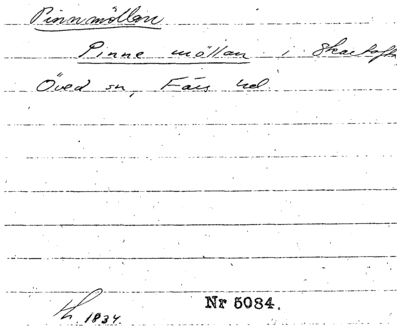 Pinnmöllan
Pinne möllan i Skartofta
Öved sn, Färs hd.
Nr 5084.
1834